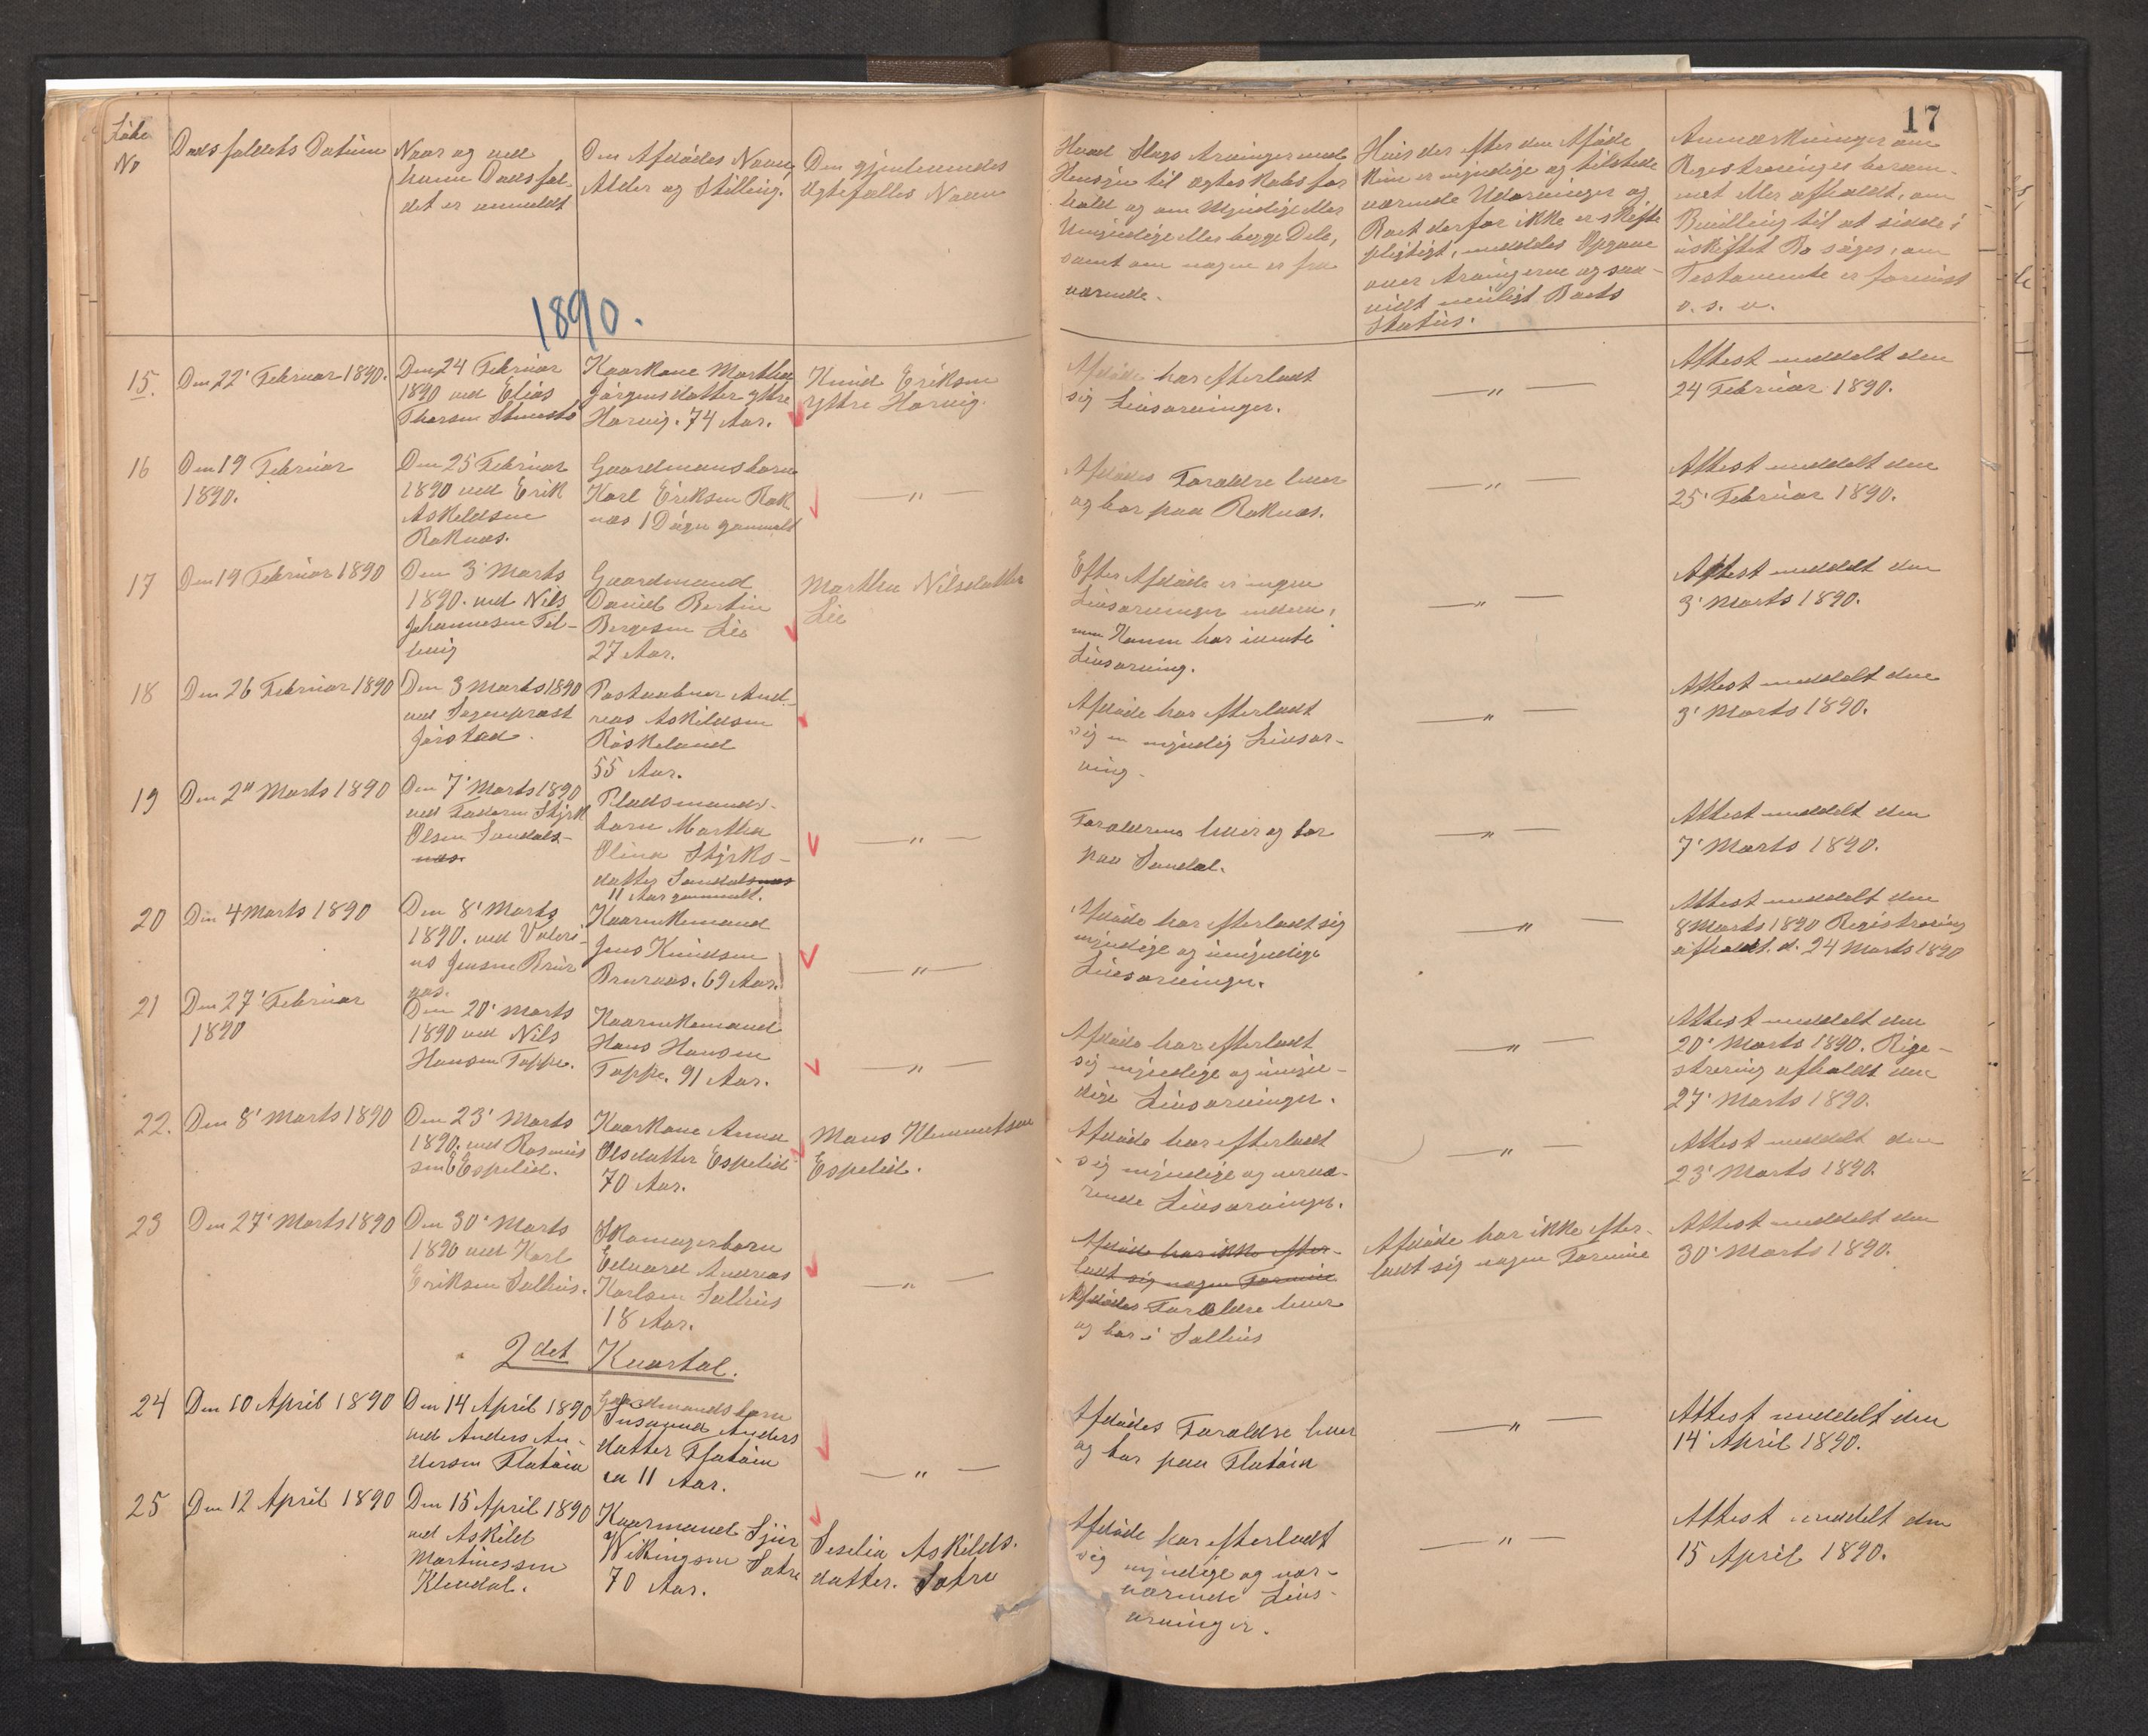 17
Løbe
No
Dødsfaldets Datum
Naar og ved
hvem Dødsfal-
det er anmeldt
Den Afdødes Navn,
Alder og Stilling.
Den gjenlevendes
Ægtefælles Navn
Hvad Slags Arvinger med
Hensyn til Ægteskabsfor
hold og om Myndige eller
Umyndige eller begge Dele,
samt om nogen er fra
værende.
Hvis der efter den Afdøde
kun er myndige og tilstede
værende Udarvinger og
Boet derfor ikke er skifte
pligtigt, meddeles Opgave
over Arvingerne og saa-
vidt muligt Boets
Status.
Anmærkninger om
Registreringer beram-
met eller afholdt, om
Bevilling til at sidde i
uskiftet Bo søges, om
Testamente er forevist
o. s. v.
1890.
15.
Den 22' Februar 1890.
Den 24 Februar
1890 ved Elias
Thorsen
Kaarkone Martha
Jørgensdatter Yttre
Hovvig. 74 Aar.
Knud Eriksen
Yttre Hovvig.
Afdøde har efterladt
sig Livsarvinger.
— „ —
Attest meddelt den
24 Februar 1890.
16
Den 19 Februar
1890.
Den 25 Februar
1890 ved Erik
Askeldsen
Roknæs.
Gaardmansbarn
Karl Eriksen Rok
næs 1 Døgn gammelt
— „ —
Afdødes Forældre lever
og bor paa Roknæs.
— „ —
Attest meddelt den
25' Februar 1890.
17
Den 19 Februar 1890
Den 3' Marts
1890. ved Nils
Johannesen Tel-
Gaardmand
David Bertin
Børgesen Lie
27 Aar.
Martha Nilsdatter
Lie
Efter Afdøde er ingen
Livsarvinger endnu,
men Konen har ivente
Livsarving.
— „ —
Attest meddelt den
3' Marts 1890.
18
Den 26 Februar 1890
Den 3 Marts 1890
ved Sogneprest
Jørstad.
Postaabner And-
reas Askildsen
Røskeland
55 Aar.
Afdøde har efterladt
sig en myndig Livsar-
ving.
— „ —
Attest meddelt den
3' Marts 1890.
19
Den 2" Marts 1890
Den 7' Marts 1890
ved Faderen Styrk
Olsen Sandals-
næs.
Pladsmands-
barn Martha
Olina Styrks-
datter Sandalsnæs
11 Aar gammelt.
— „ —
Forældrene lever og bor
paa Sandal.
— „ —
Attest meddelt den
7' Marts 1890.
20
Den 4 Marts 1890
Den 8' Marts
1890. ved Valeri-
us Jensen Brur
aas.
Kaarenkemand
Jens Knudsen
Bruraas. 69 Aar.
— „ —
Afdøde har efterladt sig
myndige og umyndige
Livsarvinger.
— „ —
Attest meddelt den
8 Marts 1890 Registrering
afholdt. d. 24 Marts 1890
21
Den 27' Februar
1890
Den 20' Marts
1890 ved Nils
Hansen Toppe.
Kaarenkemand
Hans Hansen
Toppe. 91 Aar.
— „ —
Afdøde har efterladt
sig myndige og umyn-
dige Livsarvinger.
— „ —
Attest meddelt den
20' Marts 1890. Rige-
strering afholdt den
27' Marts 1890.
22.
Den 8' Marts 1890
Den 23' Marts
1890. ved Rasmus
sen Espelid.
Kaarkone Anna
Olsdatter Espelid
70 Aar.
Mons Klemmetsen
Espelid.
Afdøde har efterladt
sig myndige og nærvæ-
rende Livsarvinger.
— „ —
Attest meddelt den
23' Marts 1890.
23
Den 27' Marts 1890
Den 30' Marts
1890 ved Karl
Eriksen Salhus.
Skomagerbarn
Edvard Andreas
Karlsen Salhus
18 Aar.
— „ —
Afdøde har ikke efter-
ladt sig nogen Formue
Afdødes Forældre lever
og bor i Salhus
Afdøde har ikke efter-
ladt sig nogen Formue
Attest meddelt den
30' Marts 1890.
2det Kvartal.
24
Den 10 April 1890
Den 14 April 1890
ved Anders An-
dersen Flatøen
Gaardmandsbarn
Susanna Anders
datter Flatøen
11 Aar.
— „ —
Afdødes Forældre lever
og bor paa Flatøen
— „ —
Attest meddelt den
14' April 1890.
25
Den 12 April 1890
Den 15 April 1890
ved Askild
Martinessen
Klendal.
Kaarmand Sjur
Wikingsen Sætre
70 Aar.
Sesilia Askilds-
datter. Sætre
Afdøde har efterladt
sig myndige og nær-
værende Livs-
arvinger.
— „ —
Attest meddelt den
15 April 1890.